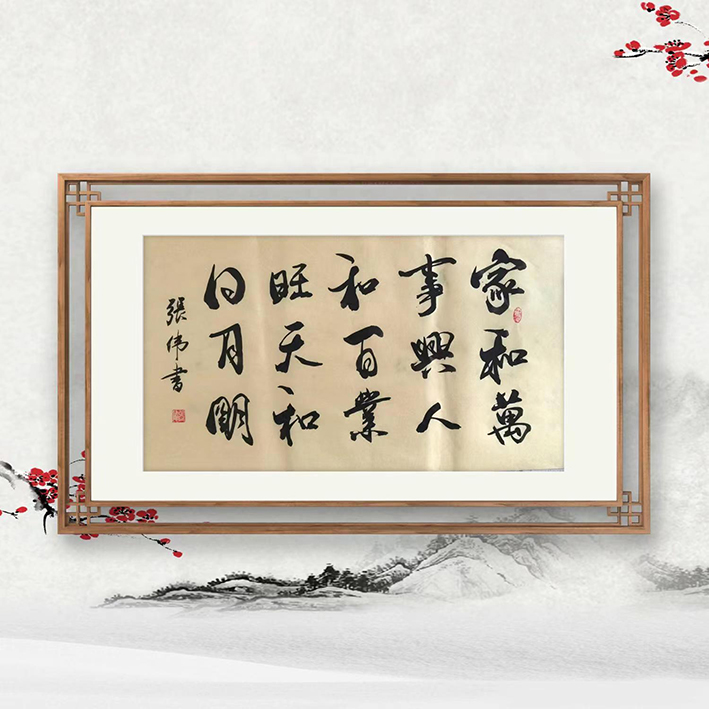 家和萬
事興人
和百業
旺天和
日月明
張偉書